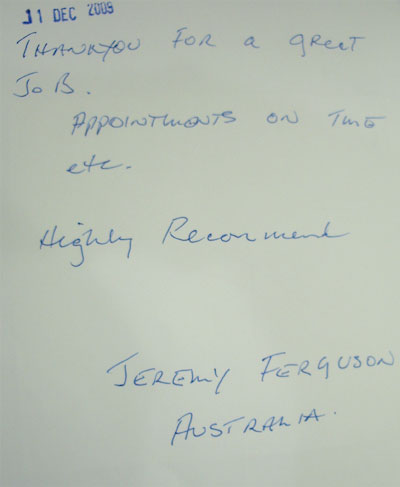 31 DEC 2009
THANKYOU FOR a greet
JOB.
APPOINTMENTS ON TIME
etc.
Highly Recommend
JEREMY FERGUSON
AUSTRALIA.